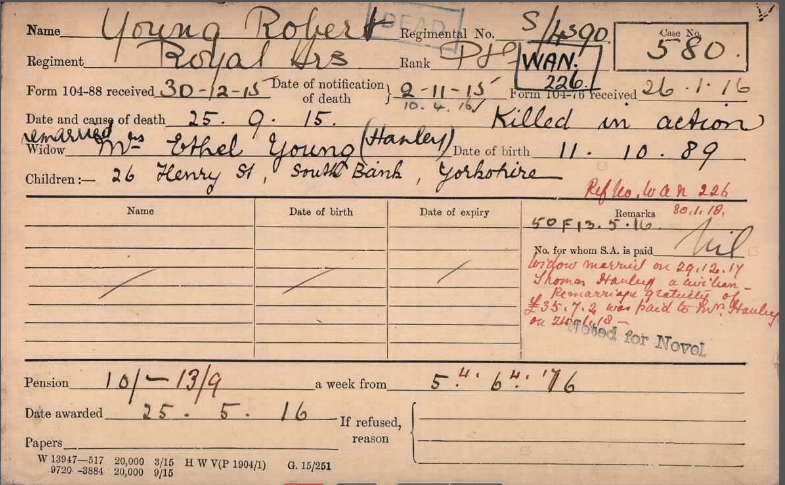 Name Young Robert DEAD Regimental No. S/4390 Case No. 580.
Regiment Royal Hrs Rank WAN. 226
Form 104-88 received 30-12-15 Date of notification of death } 2-11-15 Form 104-76 received 26.1.16
10.4.16
Date and cause of death 25.9.15. Killed in action
remarried
Widow Mrs Ethel Young (Hanley) Date of birth 11.10.89
Children:— 26 Henry St, South Bank, Yorkshire
Ref No. WAN 226
30.1.18.
Name Date of birth Date of expiry Remarks
50F13.5.16
No. for whom S.A. is paid Nil
Widow married on 29.12.17
Thomas Hanley a civilian –
Remarriage gratuity of
£35.7.2 was paid to Mrs Hanley
on
Noted for Novel
Pension 10/- 13/9 a week from 5.4. 6.4.'16
Date awarded 25.5.16 If refused, reason
Papers
W 13947—517 20,000 3/15 H W V(P 1904/1) G. 15/251
9720 -3884 20,000 9/15